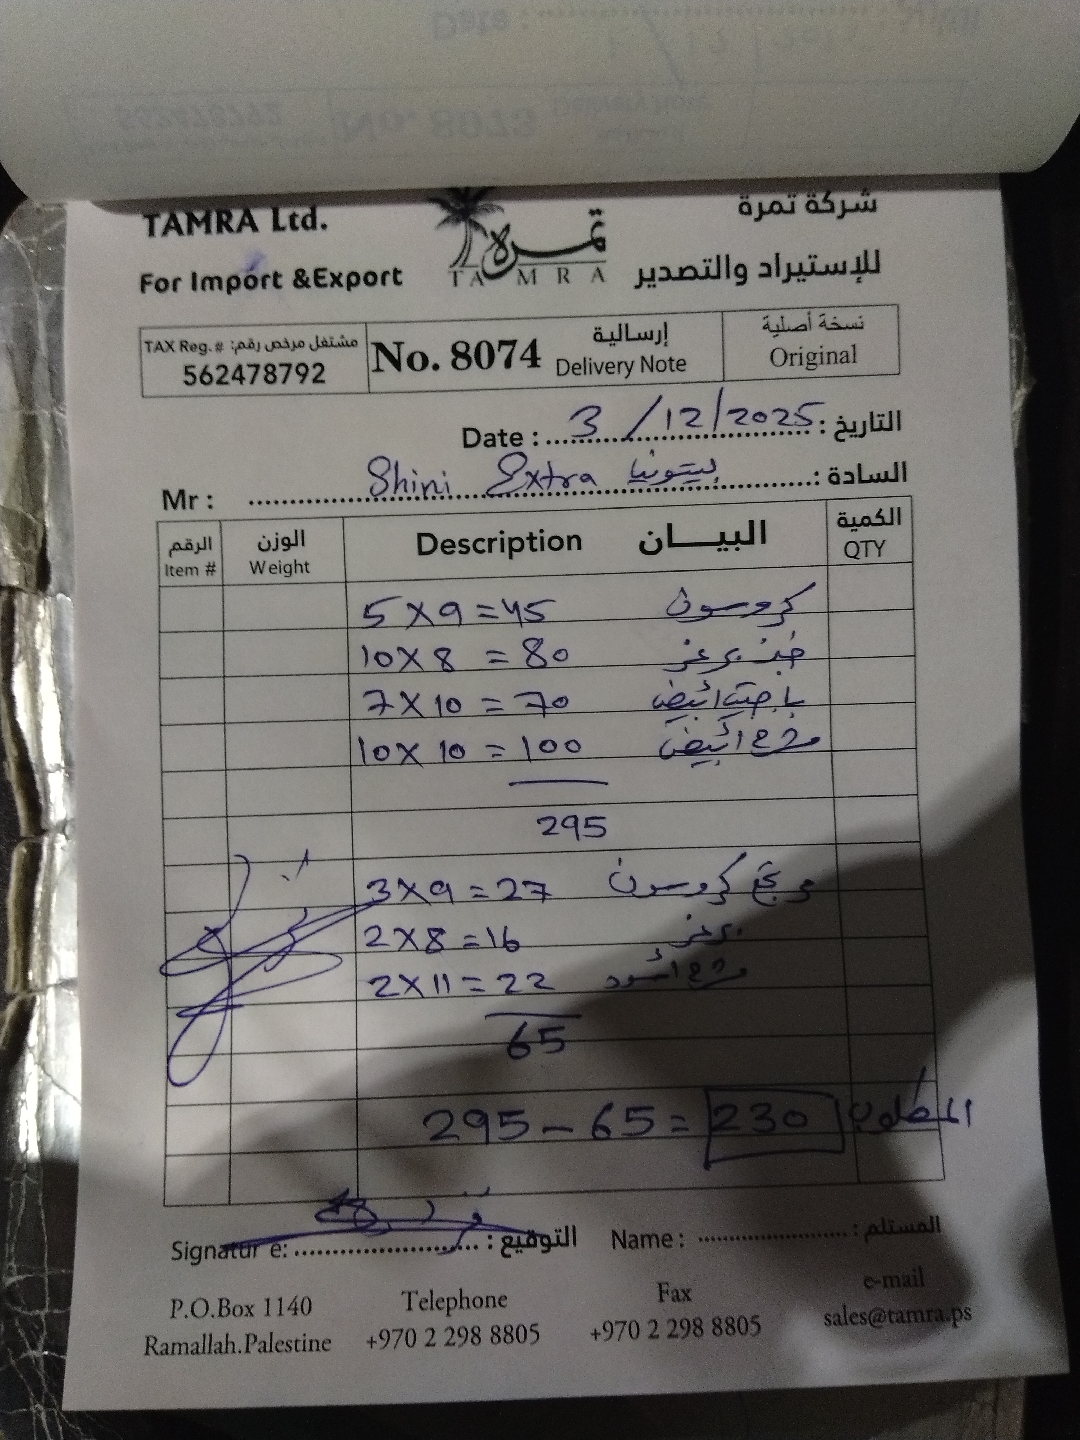 TAMRA Ltd.
شركة تمرة
For Import &Export
تمرة
TAMRA
للإستيراد والتصدير
TAX Reg. # مشتغل مرخص رقم:
562478792
No. 8074
إرسالية
Delivery Note
نسخة أصلية
Original
Date : 3/12/2025 التاريخ :
Mr : Shini Extra بيتونيا السادة :
الرقم الوزن Description البيـــان الكمية
Item # Weight QTY
5 x 9 = 45 كروسون
10 x 8 = 80 خبز برغر
7 x 10 = 70 باجيت ابيض
10 x 10 = 100 ابيض
295
3 x 9 = 27 مرتجع كروسون
2 x 8 = 16 برغر
2 x 11 = 22 اسود
65
295 - 65 = 230 المطلوب
Signatur e: التوقيع : Name : المستلم :
P.O.Box 1140 Telephone Fax e-mail
Ramallah.Palestine +970 2 298 8805 +970 2 298 8805 sales@tamra.ps